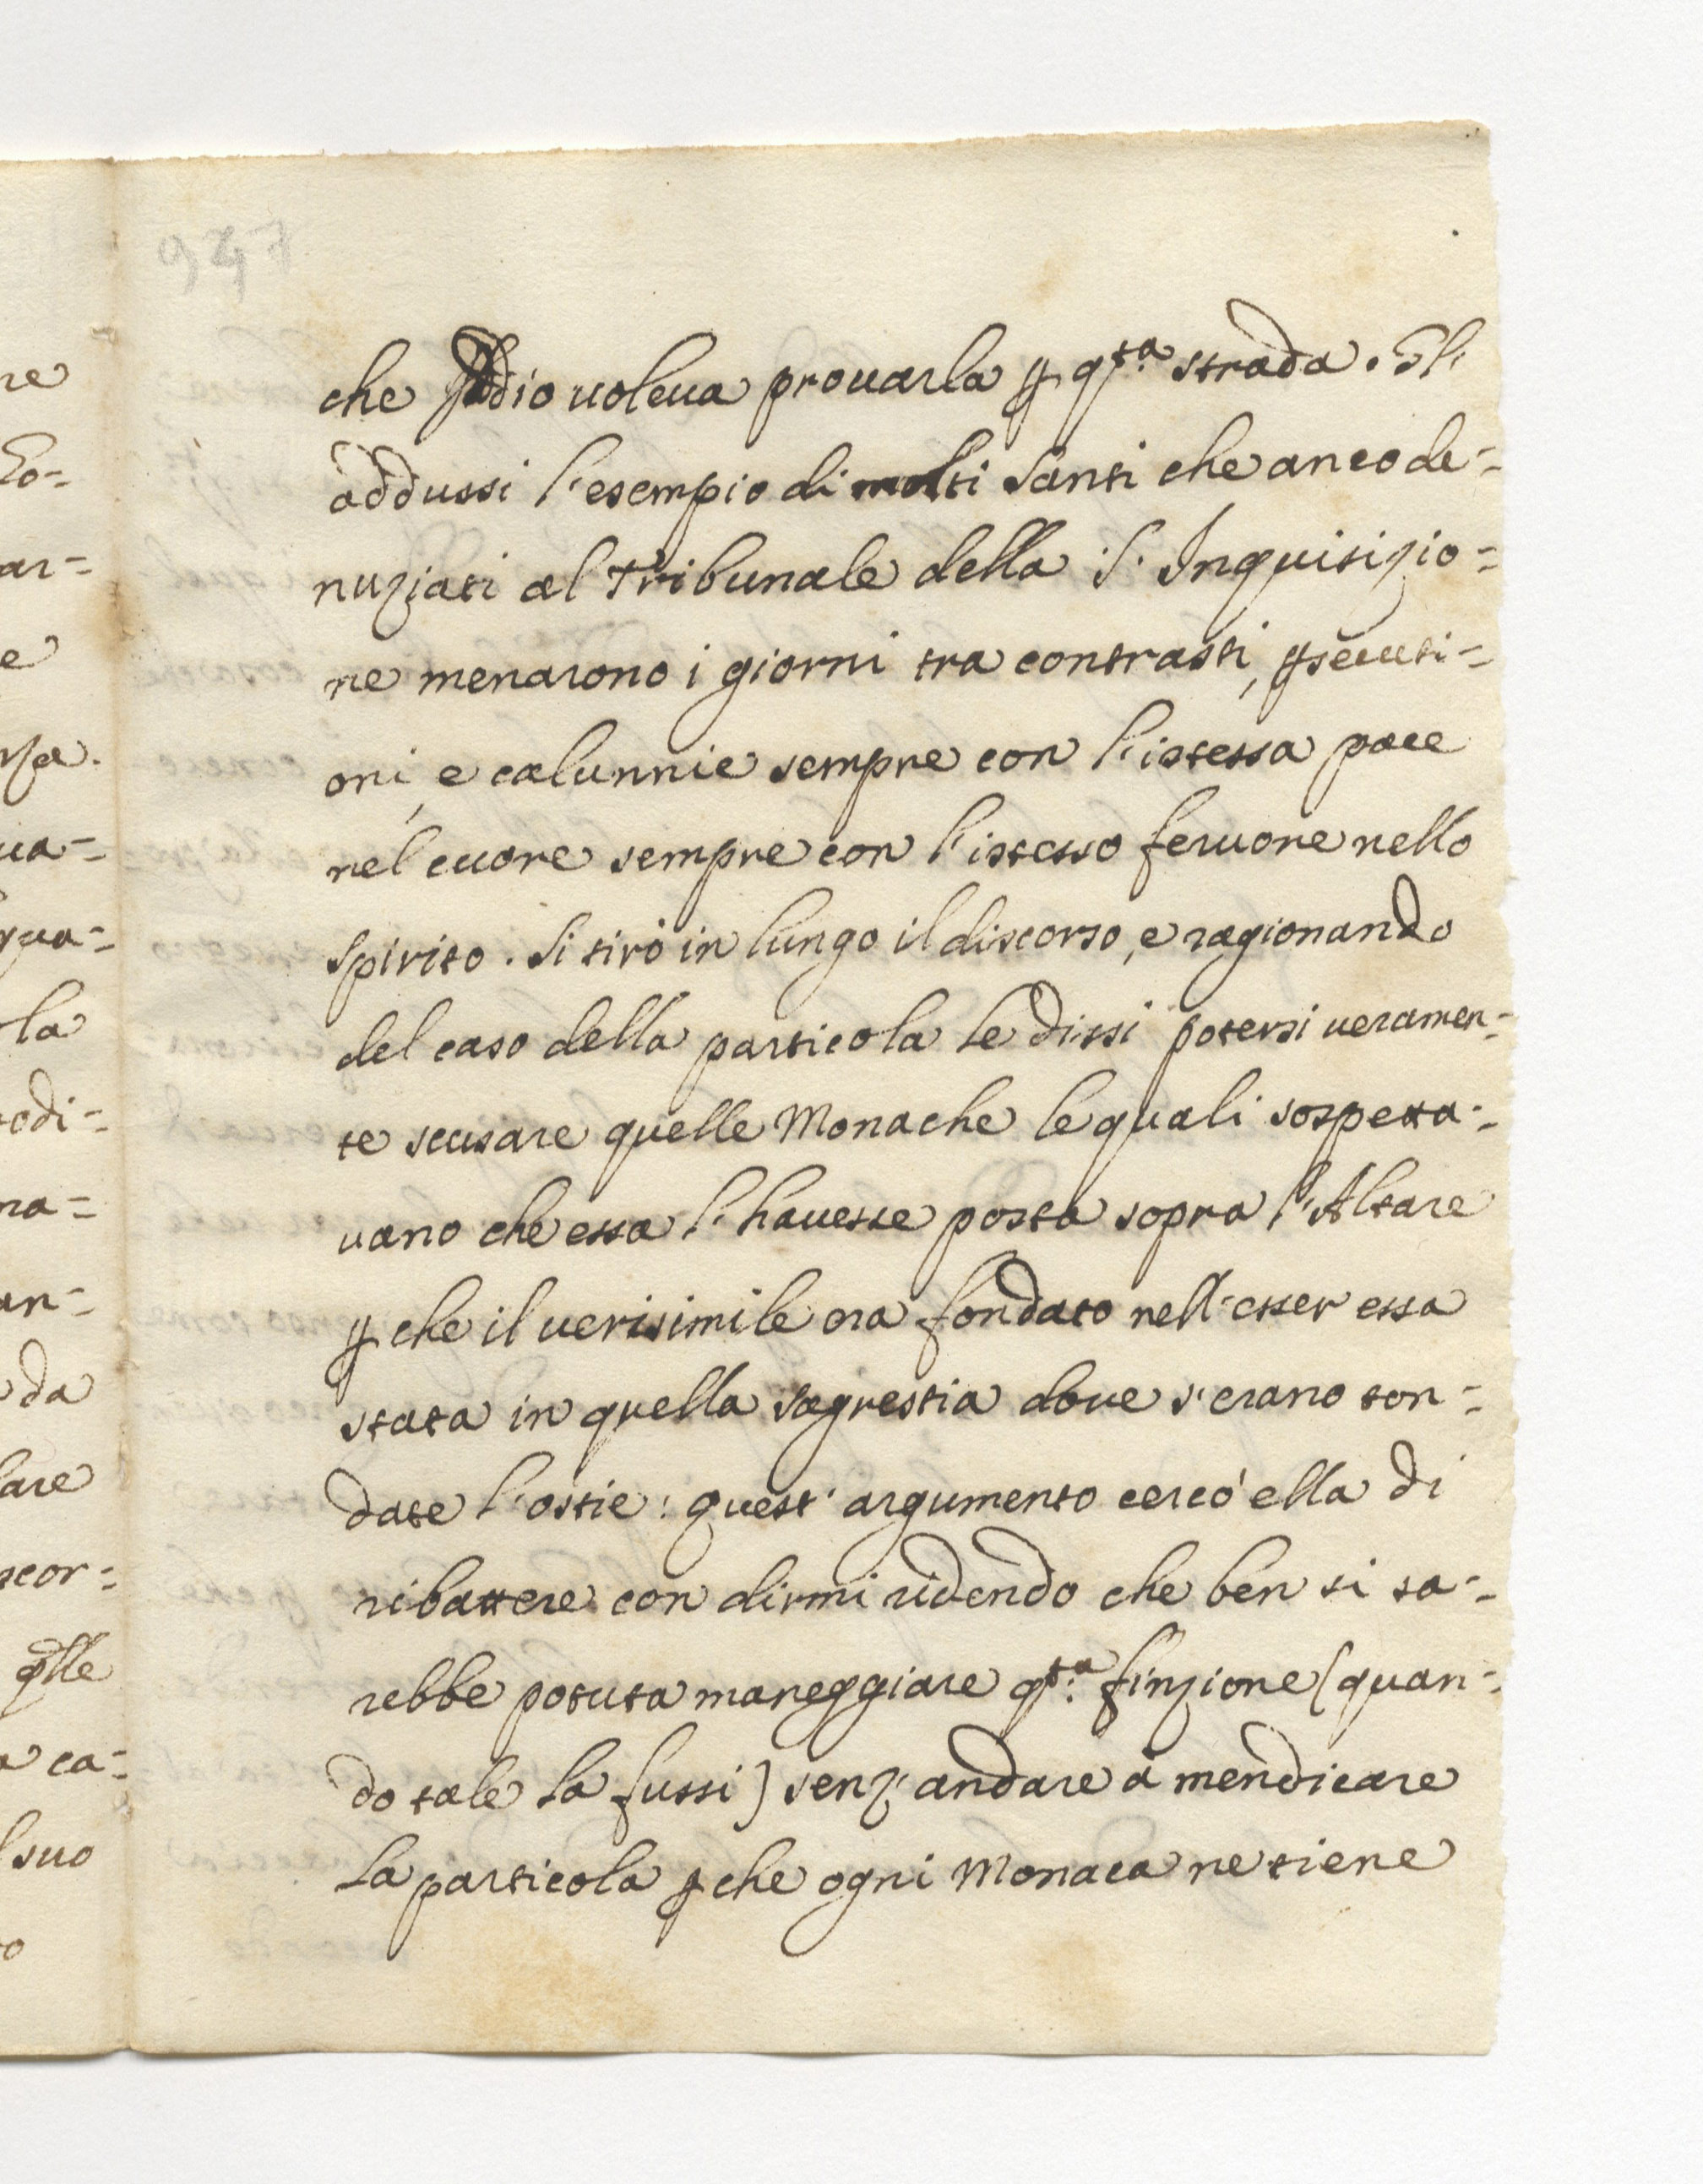 947
che Iddio uoleua prouarla ꝑ qta. strada. Gli
addussi l'esempio di molti Santi che anco de=
nuziati al Tribunale della S. Inquisizio=
ne menarono i giorni tra contrasti, ꝑsecuti=
oni, e calunnie sempre con l'istessa pace
nel cuore sempre con l'istesso feruore nello
Spirito. Si tirò in lungo il discorso, e ragionando
del caso della particola le dissi potersi veramen=
te scusare quelle Monache le quali sospetta=
uano che essa l'hauesse posta sopra l'Altare
ꝑche il uerisimile era fondato nell'esser essa
stata in quella sagrestia doue s'erano ton=
date l'ostie: quest'argumento cercò ella di
ribattere con dirmi ridendo che ben si sa=
rebbe potuta maneggiare qta. finzione (quan=
do tale la fussi) senz'andare à mendicare
la particola ꝑche ogni Monaca ne tiene
re
ar=
e
ua=
la
odi=
na=
an=
da
are
scor=
qlle
ca=
suo